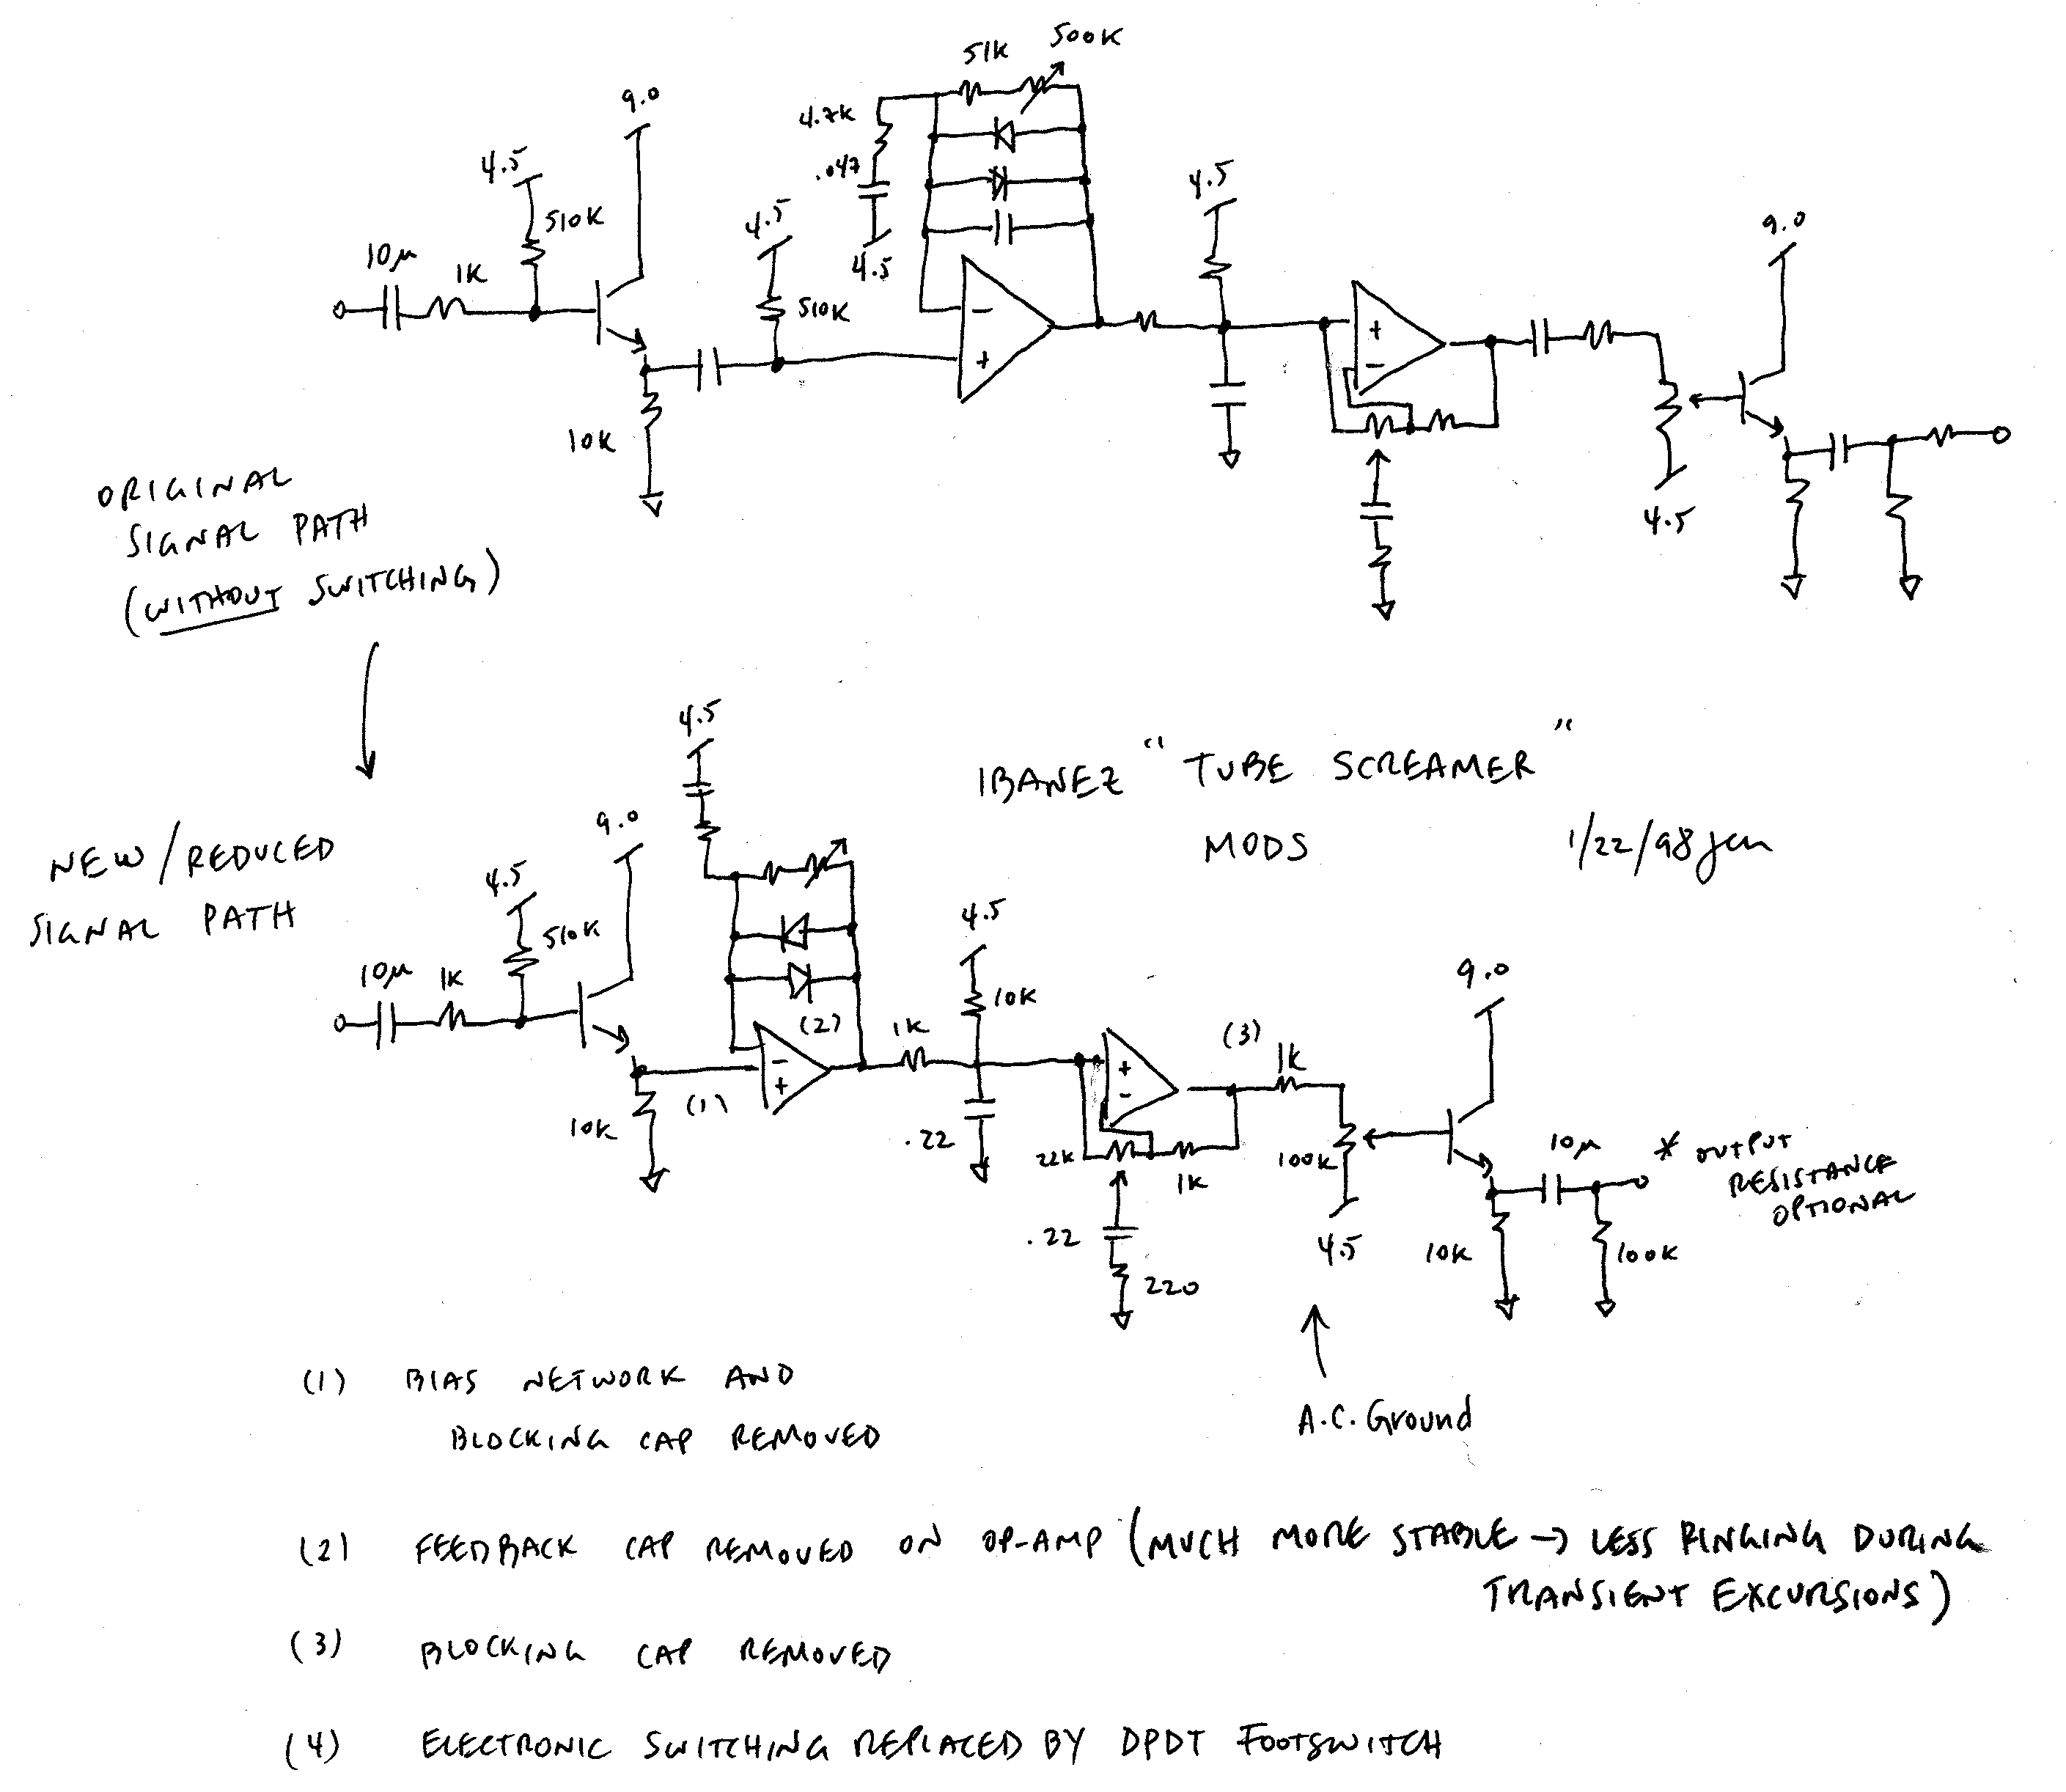 51K 500K
9.0
4.7K
.047
4.5
4.5
4.5
9.0
510K
4.5
10µ 1K
510K
-
+
+
-
10K
4.5
ORIGINAL
SIGNAL PATH
(WITHOUT SWITCHING)
4.5
IBANEZ "TUBE SCREAMER"
MODS 1/22/98
NEW/REDUCED
SIGNAL PATH
9.0
4.5
510K
4.5
10K
9.0
10µ 1K
(2)
1K
(3)
1K
-
+
+
-
(1)
10K
.22
22K
1K
100K
10µ
* OUTPUT
RESISTANCE
OPTIONAL
.22
220
4.5
10K
100K
A.C. Ground
(1) BIAS NETWORK AND
BLOCKING CAP REMOVED
(2) FEEDBACK CAP REMOVED ON OP-AMP (MUCH MORE STABLE → LESS RINGING DURING
TRANSIENT EXCURSIONS)
(3) BLOCKING CAP REMOVED
(4) ELECTRONIC SWITCHING REPLACED BY DPDT FOOTSWITCH